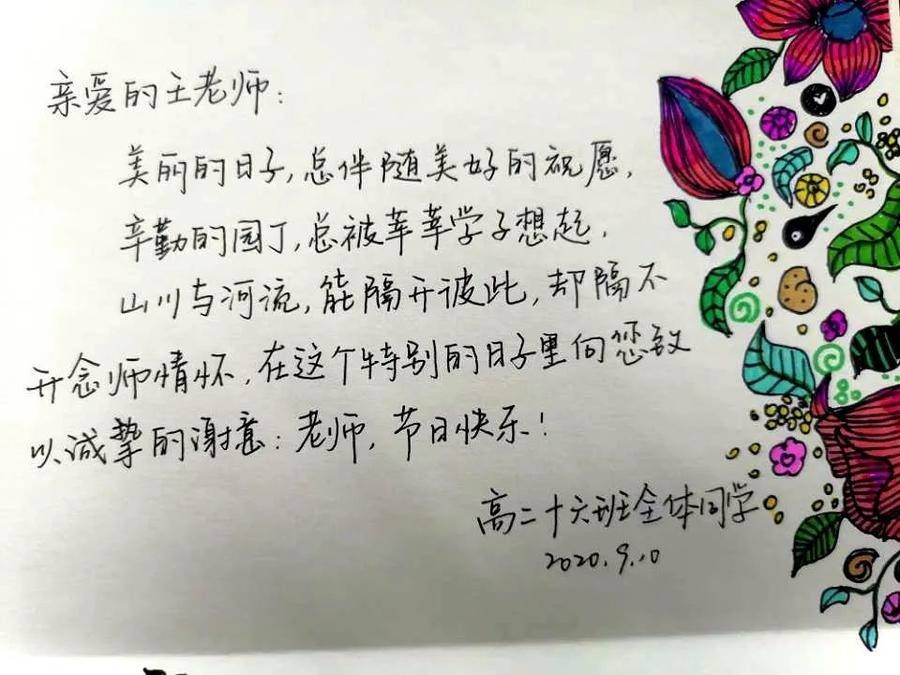 亲爱的王老师：
美丽的日子，总伴随美好的祝愿，
辛勤的园丁，总被莘莘学子想起，
山川与河流，能隔开彼此，却隔不
开念师情怀，在这个特别的日子里向您致
以诚挚的谢意：老师，节日快乐！
高二十六班全体同学
2020.9.10